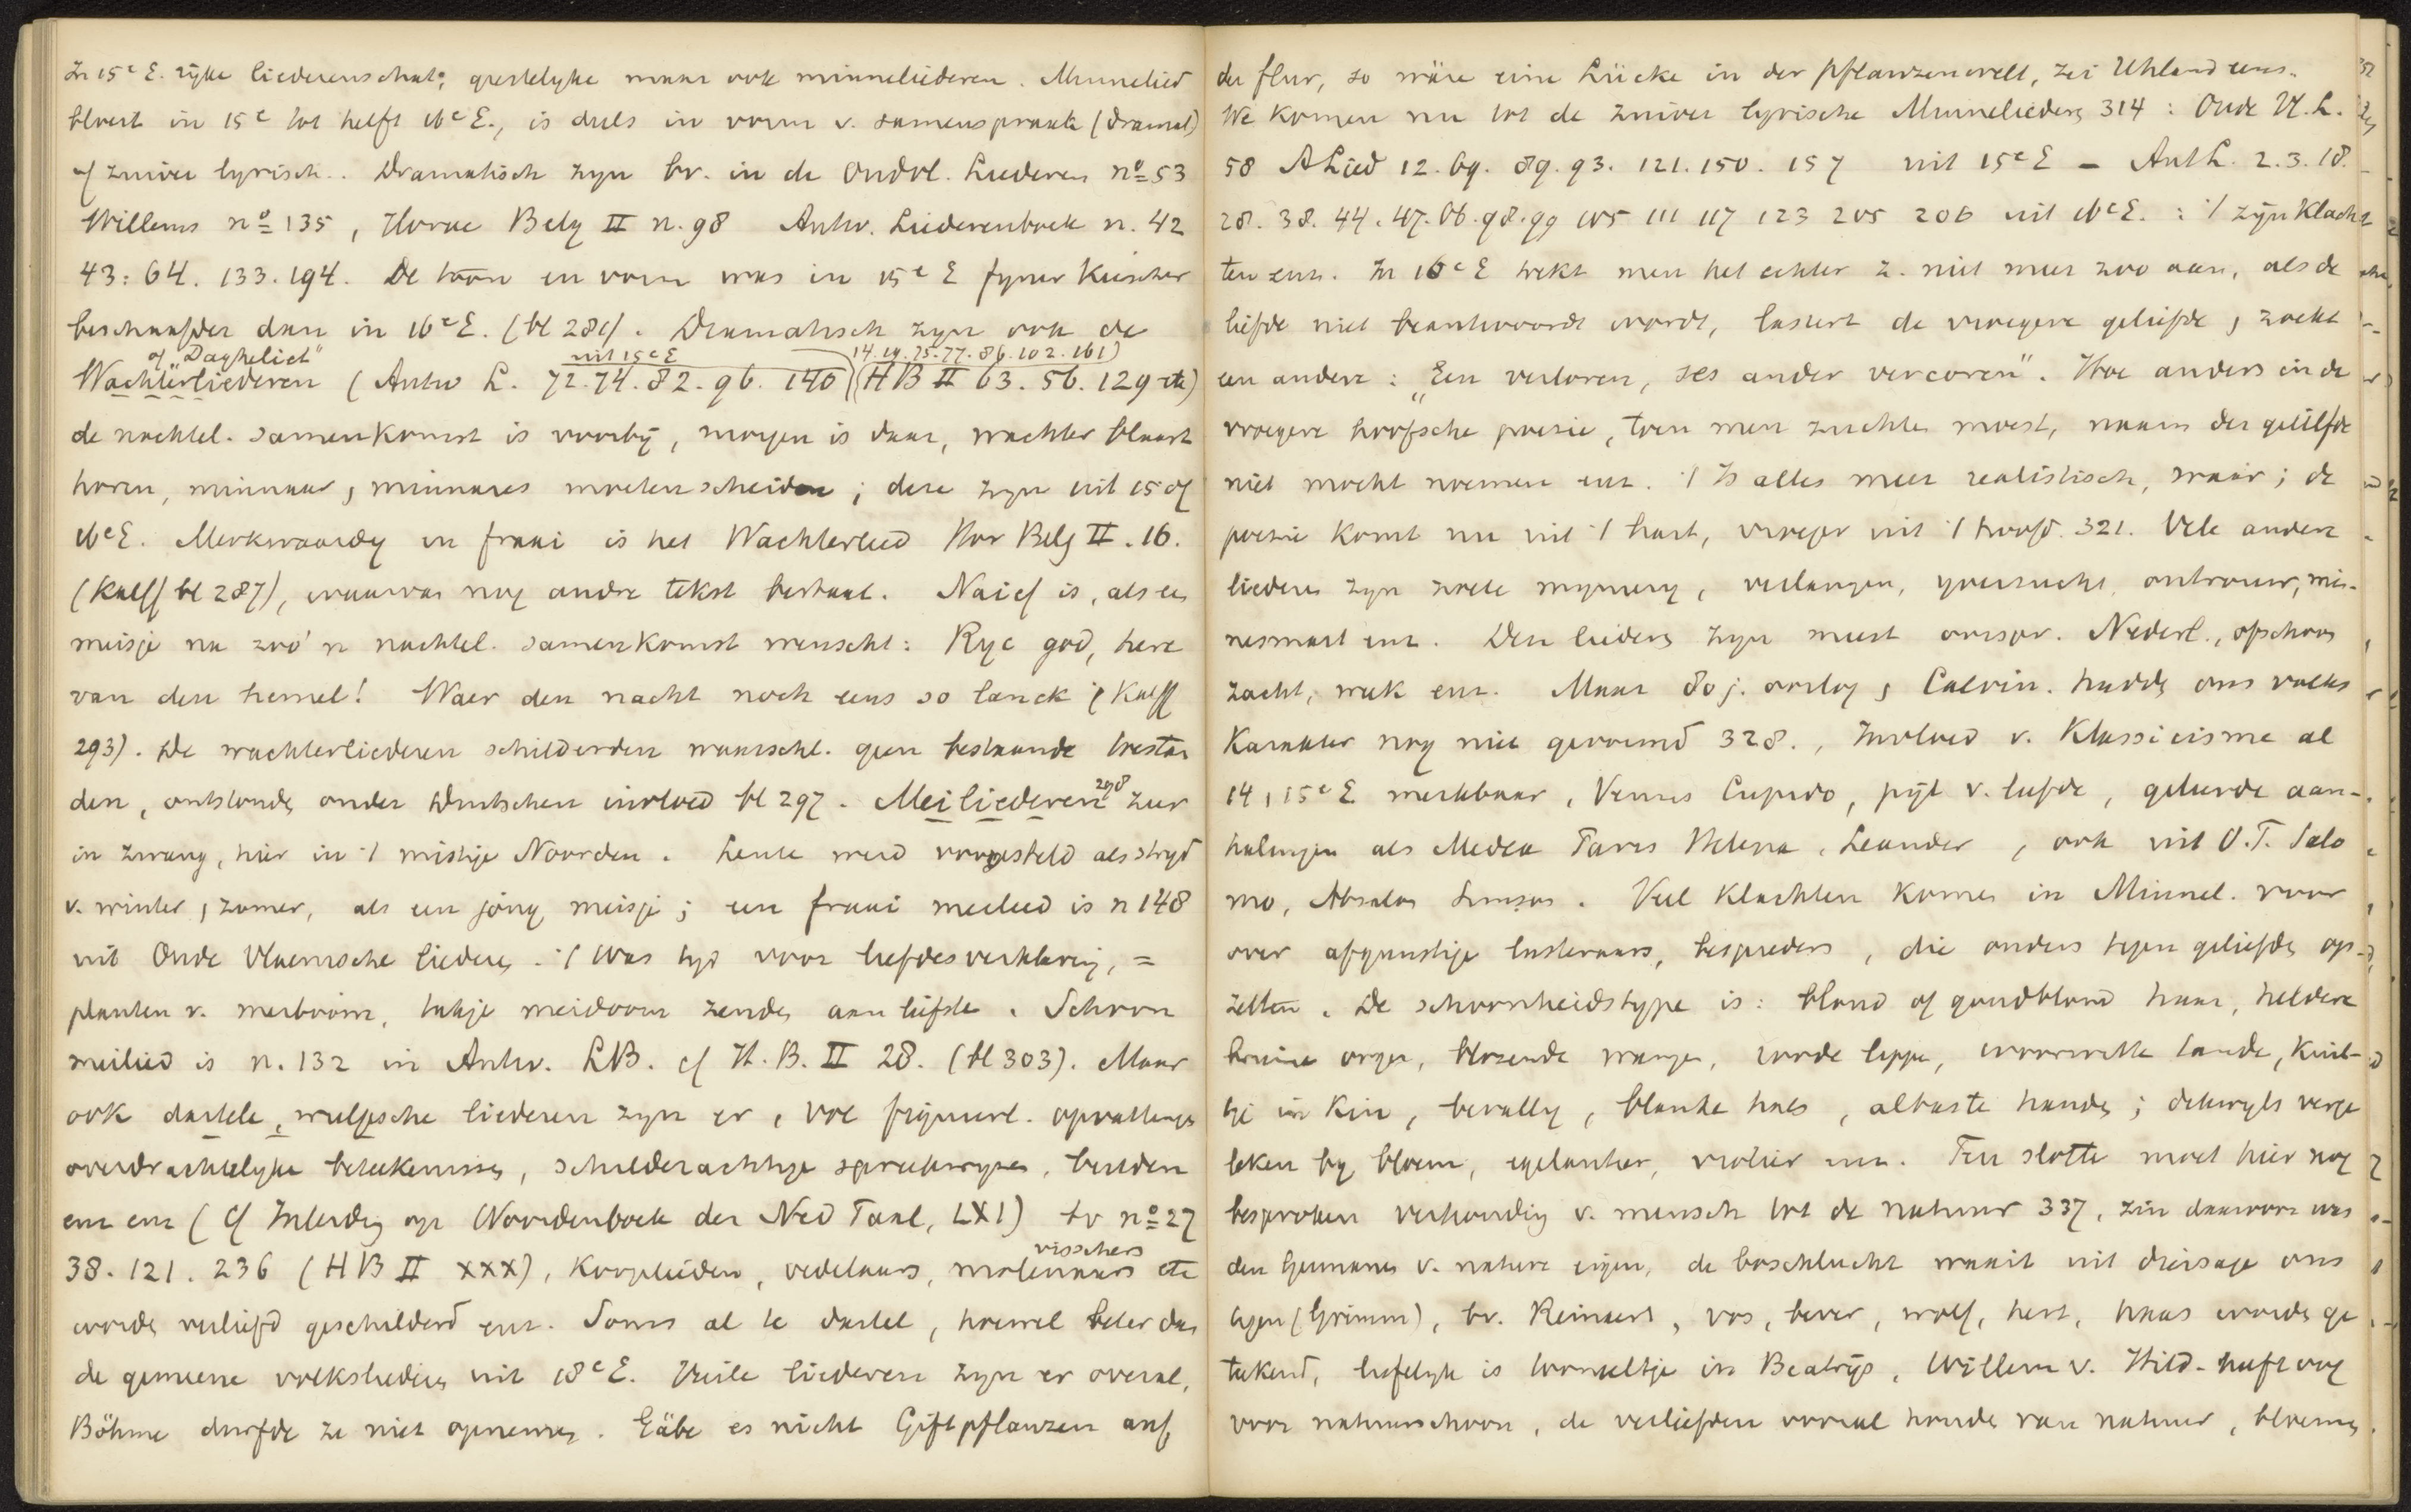 In 15e E. rijke liederenschat; geestelyke maar ook minneliederen. Minnelied
bloeit in 15e tot helft 16e E., is deels in vorm v. samenspraak (dramat)
of zuiver lyrisch.. Dramatisch zyn bv. in de Oudvl. Liederen no 53
Willems no 135, Horae Belg II n. 98 Antw. Liederenboek n. 42
43: 64. 133. 194. De toon en vorm was in 15e E fyner kiescher
beschaafder dan in 16e E. (bl 281). Dramatisch zyn ook de
of "Dagheliet" uit 15e E 14. 19. 75. 77. 86. 102. 161)
Wachterliederen (Antw L. 72. 74. 82. 96. 140) (HB II 63. 56. 129 etc)
de nachtel. samenkomst is voorbij, morgen is daar, wachter blaast
horen, minnaar, minnares moeten scheiden; deze zyn uit 15 of
16e E. Merkwaardig en fraai is het Wachterlied Hor Belg II. 16.
(Kalff bl 287), waarvan nog andre tekst bestaat. Naief is, als een
meisje na zoo'n nachtel. samenkomst wenscht: Ryc god, here
van den hemel! Waer den nacht noch eens so lanck (Kalff
293). De wachterliederen schilderden waarschl. geen bestaande toestan
den, ontstonden onder Duitschen invloed bl 297. Meiliederen 298 zeer
in zwang, hier in 't mistige Noorden. Lente werd voorgesteld als stryd
v. winter, zomer, als een jong meisje; een fraai meilied is n 148
uit Oude Vlaemsche liederen. 't Was tyd voor liefdesverklaring, =
planten v. meiboom, takje meidoorn zenden aan liefste. Schoon
meilied is n. 132 in Antw. LB. cf H. B. II 28. (bl 303). Maar
ook dartele, wulpsche liederen zyn er, vol figuurl. opvattingen
overdrachtelyke beteekenissen, schilderachtige spreekwyzen, beelden
enz enz (Cf Inleiding op Woordenboek der Ned Taal, LXI) bv no 27
38. 121. 236 (HB II XXX), Kooplieden, vedelaars, molenaars visschers etc
worden verliefd geschilderd enz. Soms al te dartel, hoewel beter dan
de gemeene volksliederen uit 18e E. Vuile liederen zyn er overal,
Böhme durfde ze niet opnemen. Gäbe es nicht Giftpflanzen auf
der flur, so wäre eine Lücke in der Pflanzenwelt, zei Uhland eens.
We komen nu tot de zuiver lyrische Minneliederen 314: Oude Vl. L.
58 A Lied 12. 69. 89. 93. 121. 150. 157 uit 15e E - Ant L. 2. 3. 18.
28. 38. 44. 47. 66. 98. 99 105 111 117 123 205 206 uit 16e E.: 't zijn klach
ten enz. In 16e E trekt men het echter z. niet meer zoo aan, als de
liefde niet beantwoordt wordt, lastert de vroegere geliefde, zoekt
een andere: "Een verloren, ses ander vercoren". Hoe anders in de
vroegere hoofsche poezie, toen men zuchten moest, naam der geliefde
niet mocht noemen enz. 't Is alles meer realistisch, waar; de
poezie komt nu uit 't hart, vroeger uit 't hoofd. 321. Vele andere
liederen zyn zoete mymering, verlangen, yverzucht, ontrouw, min-
nesmart enz. Den liederen zyn meest oorspr. Nederl., ofschoon
zacht, week enz. Maar 80 j. oorlog, Calvin. hadden ons volks
karakter nog niet gevormd 328., Invloed v. Klassicisme al
14, 15e E merkbaar, Venus Cupido, pijl v. liefde, geleerde aan-
halingen als Medea Paris Helena, Leander, ook uit O.T. Salo
mo, Absalon Simson. Veel klachten komen in Minnel. voor
over afgunstige lasteraars, bespieders, die anders tegen geliefden op-
zetten. De schoonheidstype is: blond of goudblond haar, heldere
bruine oogen, blozende wangen, roode lippen, ivoorwitte tanden, kuil-
tje in kin, bevallig, blanke hals, albaste handen; dikwyls verge
leken by bloem, egelantier, violier enz. Ten slotte moet hier nog
besproken verhouding v. mensch tot de natuur 337, zin daarvoor was
den Germanen v. nature eigen, de boschlucht waait uit diersage ons
tegen (Grimm), bv. Reinaert, vos, bever, wolf, hert, haas worden ge
teekend, liefelyk is tooneeltje in Beatrijs, Willem v. Hild- heeft oog
voor natuurschoon, de verliefden vooral houden van natuur, bloemen